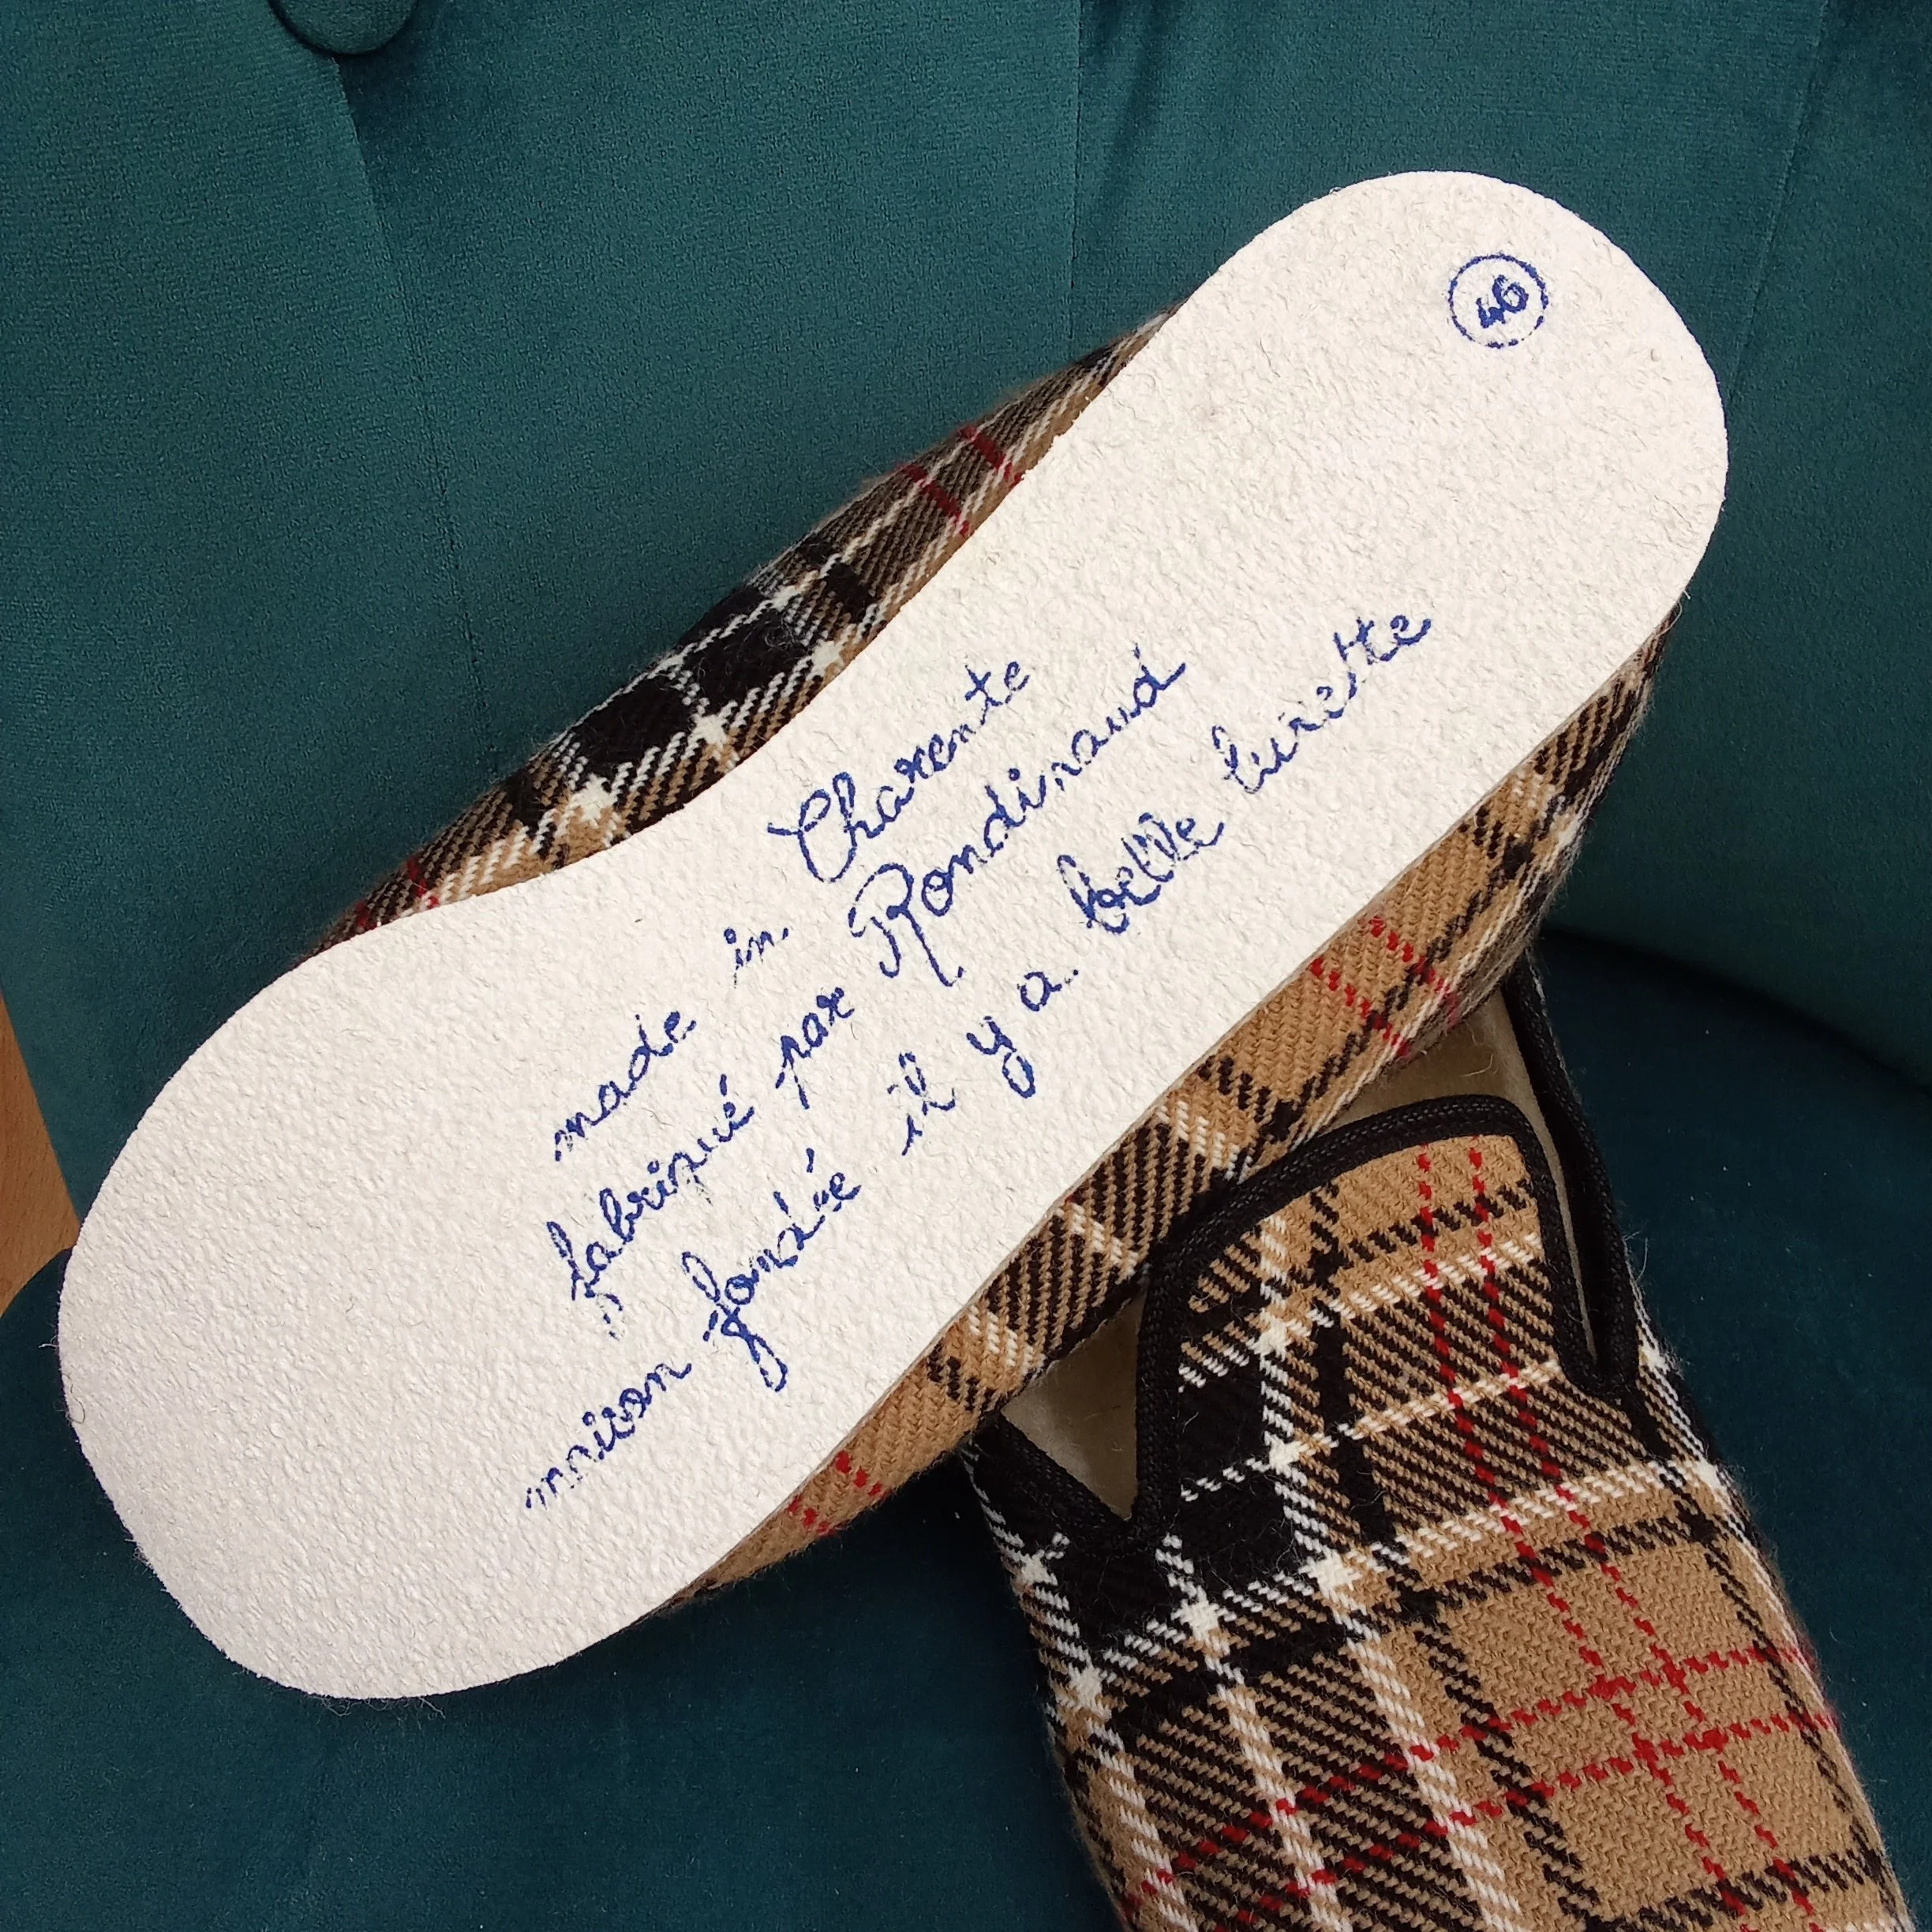 46
made in Charente
fabriqué par Rondinaud
maison fondée il y a belle lurette